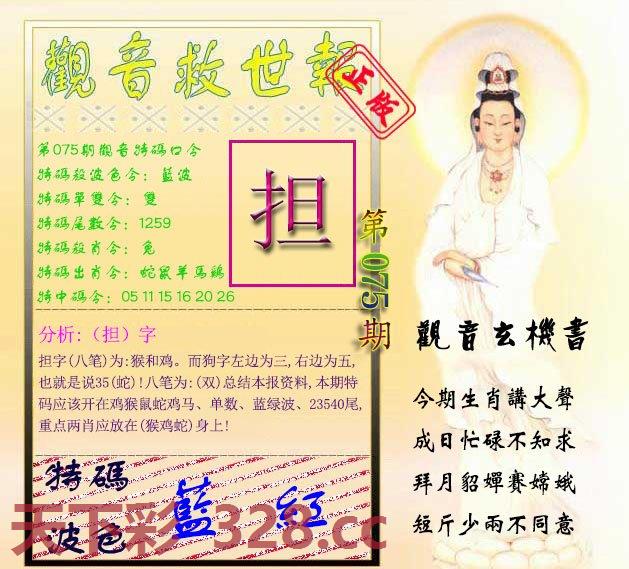 觀音救世報
正版
第075期觀音特碼口令
特碼殺波色令：藍波
特碼單雙令：雙
特碼尾數令：1259
特碼殺肖令：兔
特碼出肖令：蛇鼠羊馬鷄
特中碼令：05 11 15 16 20 26
担
第075期
分析:（担）字
担字(八笔)为:猴和鸡。而狗字左边为三,右边为五,
也就是说35(蛇)!八笔为:(双)总结本报资料,本期特
码应该开在鸡猴鼠蛇鸡马、单数、蓝绿波、23540尾,
重点两肖应放在(猴鸡蛇)身上!
特碼
波色
藍 紅
天下彩 328.cc
觀音玄機書
今期生肖講大聲
成日忙碌不知求
拜月貂嬋賽嫦娥
短斤少兩不同意